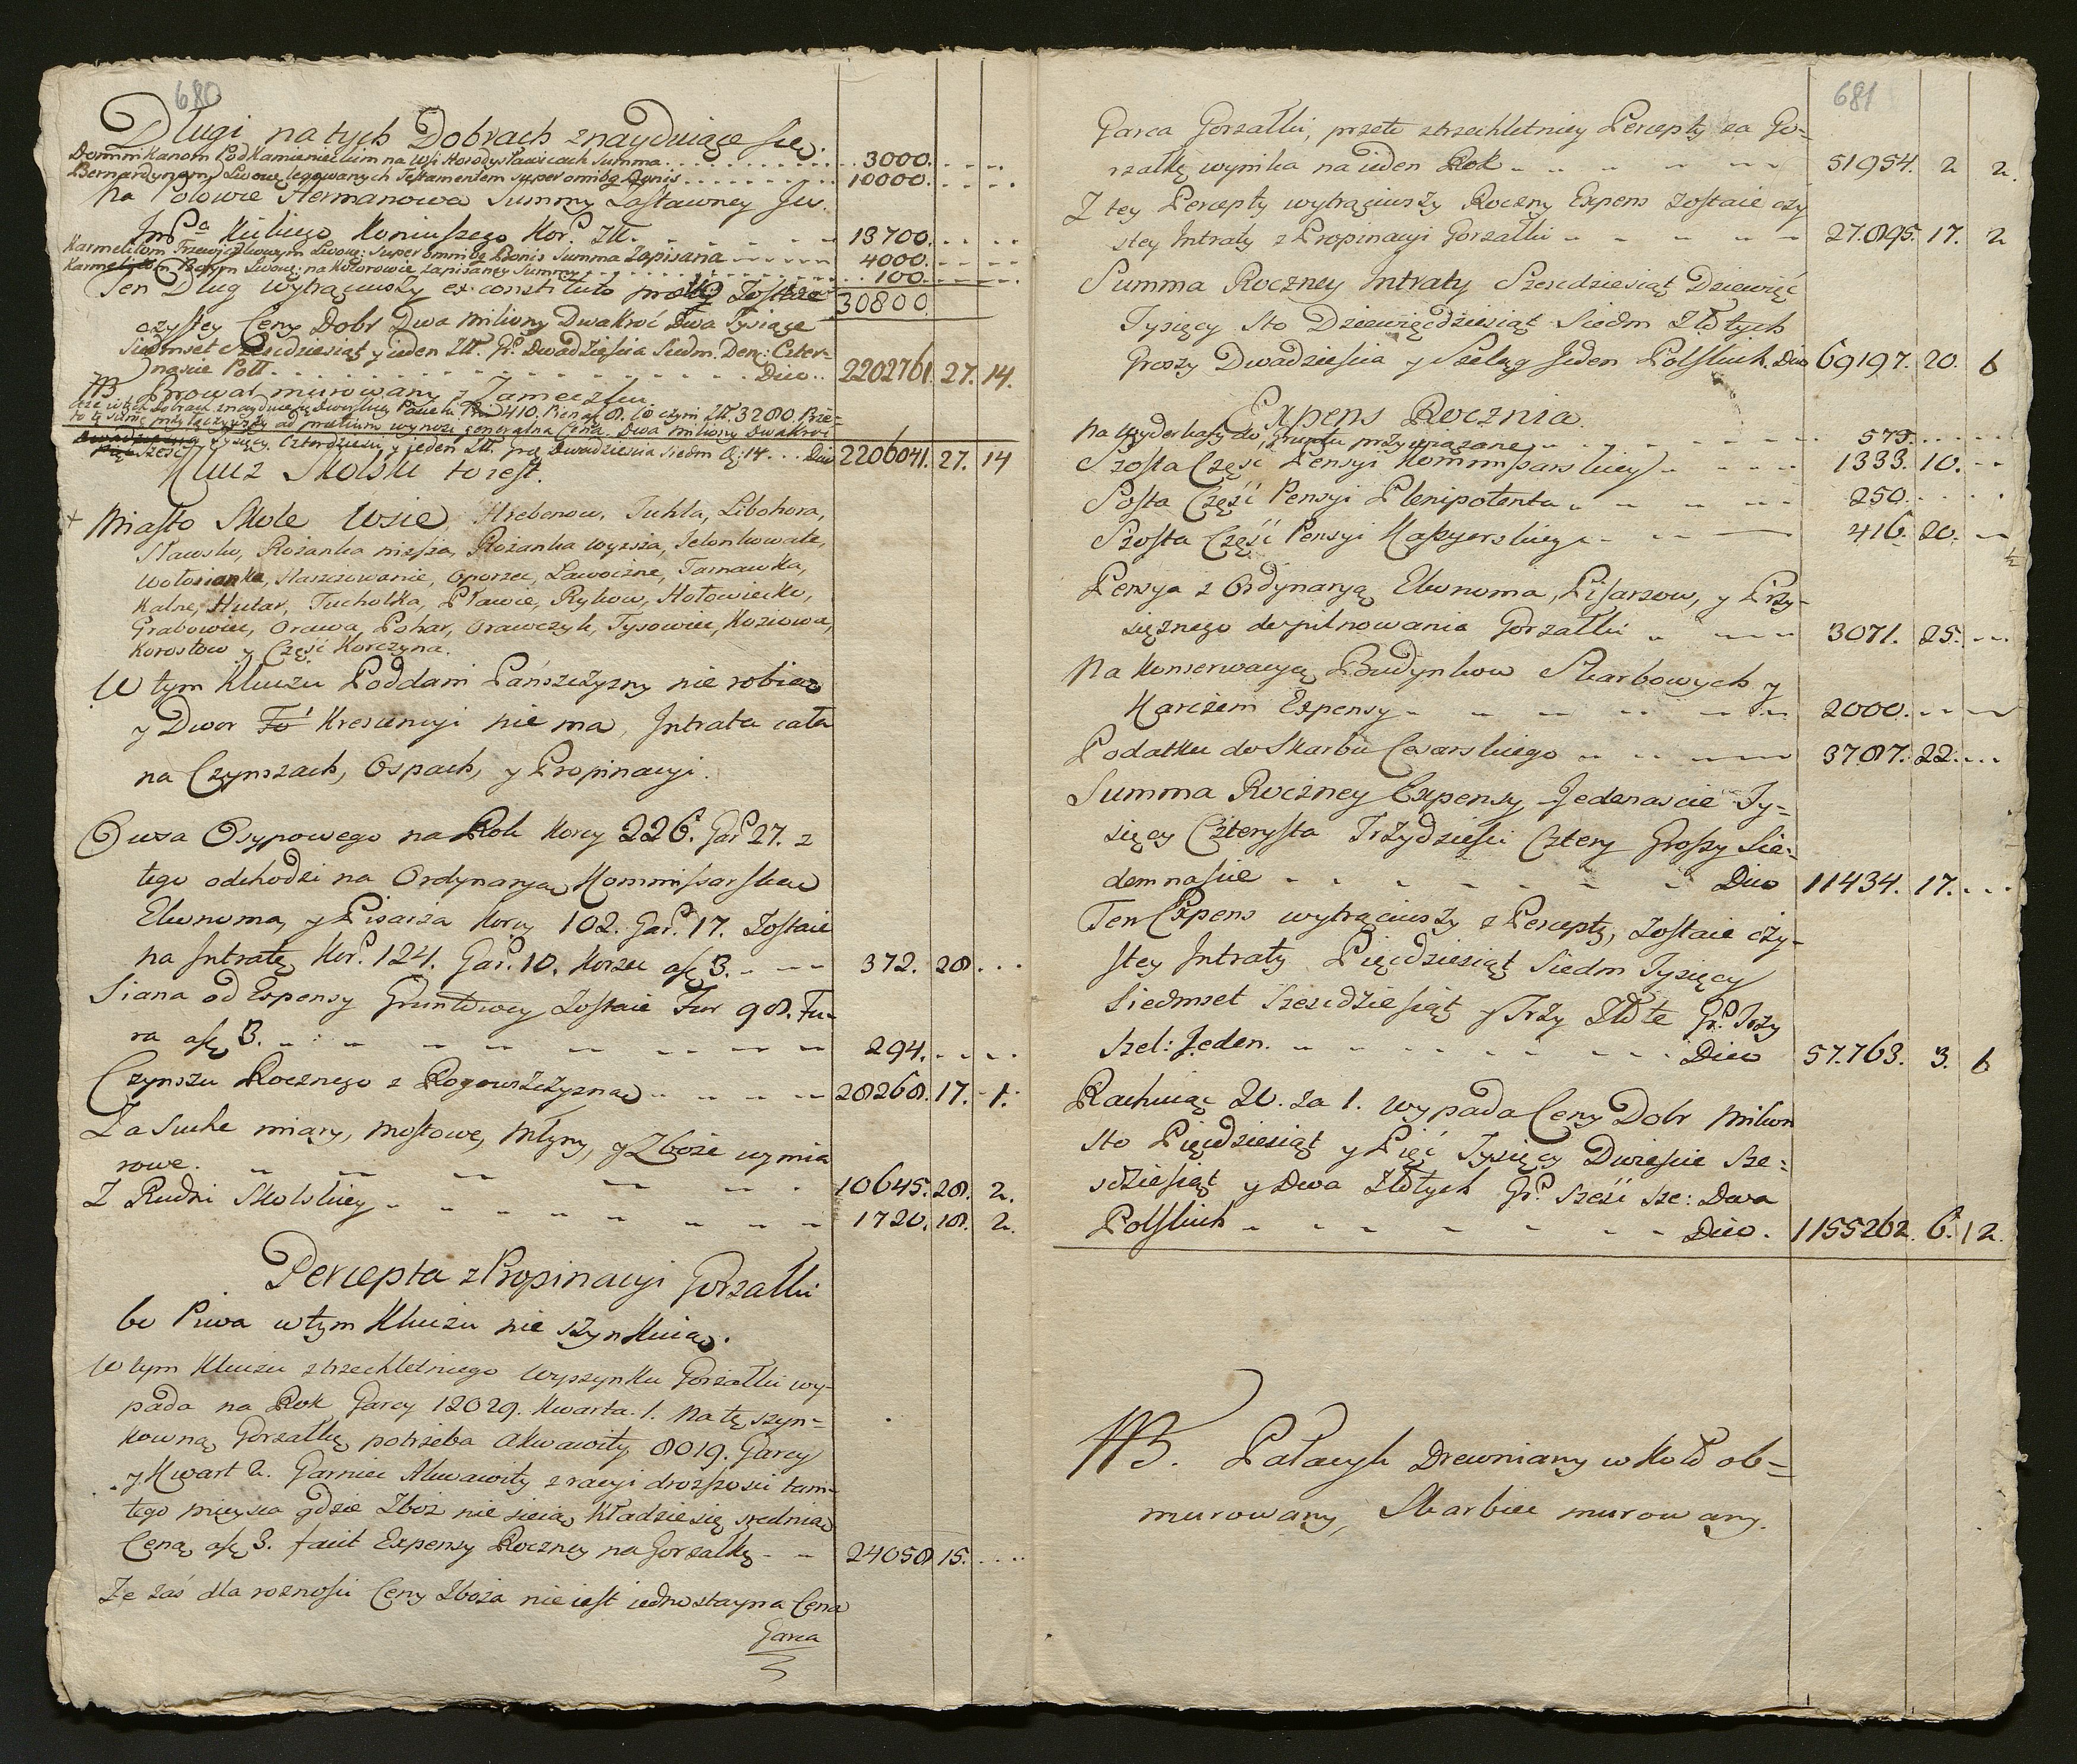 680
Długi na tych Dobrach znayduiące się.
Dominikanom Podkamienieckim na Wsi Horodysławicach Summa . . . 3000. . . .
Bernardynom Lwow: legowanych Testamentem super omnibg Bonis . . . 10000. . . .
Na Połowie Hermanowa Summy Zastawney Jw.
JmPa Kickiego Koniuszego Kor. Ztt. - - - 13700. . . .
Karmelitom Trzewiczkowym Lwow: super omnibg Bonis Summa Zapisana - - - 4000. - - -
Karmelitom Bosym Lwow: na Kłodorowie zapisaney Summy . . . 100. - - -
Ten Dług wytrąciwszy ex constituto Zostaie 30800
czystey Ceny Dobr Dwa Miliony Dwakroć Dwa Tysiące
Siedmset Sześcdziesiąt y ieden Ztt. Gr. Dwadzieścia Siedm. Den: Czter-
nascie Poll. . . . Dico . . 2202761. 27. 14.
NB Browar murowany y Zameczku.
410. 8. to czyni Ztt. 3280.
ad pretium wynosi generalna Cena. Dwa Miliony Dwakroć
Sześć Tysięcy Czterdzieści y jeden Ztt. Gr. Dwadziescia Siedm D: 14 . . . Dico 2206041. 27. 14
Klucz Skolski to iest.
+ Miasto Skole Wsie, Hrebenow, Tuchla, Libohora,
Sławsko, Rożanka niższa, Rożanka wyższa, Jelonkowate,
Wołosianka, Harasowanie, Oporzec, Ławoczne, Tarnawka,
Kalne, Hutar, Tucholka, Pławie, Rykow, Hołowiecko,
Grabowiec, Orawa, Pohar, Orawczyk, Tysowiec, Koziowa,
Korostow y Część Korczyna.
W tym Kluczu Poddani Pańszczyzny nie robią
y Dwor Kresencyi nie ma, Jntrata cała
na Czynszach, Ospach, y Propinacyi.
Owsa Osypowego na Rok Korcy 226. Gar. 27. z
tego odchodzi na Ordynaryą Kommissarską
Ekonoma, y Pisarza Korcy 102. Gar. 17. Zostaie
na Jntratę Kor. 124. Gar. 10. Korzec a 3. - - - 372. 28. . . .
Siana od Expensy Gruntowey Zostaie Fur 98. Fu-
ra a 3. - - - 294. . . .
Czynszu Rocznego z Rogowszczyzną - - - 28268. 17. 1.
Za Suche miary, mostowe, Młyny, y Zboże wymia
rowe. - - - 10645. 28. 2.
Z Rudni Skolskiey - - - 1720. 18. 2.
Percepta z Propinacyi Gorzałki
bo Piwa w tym Kluczu nie szynkuią.
W tym Kluczu z trzechletniego Wyszynku Gorzałki wy-
pada na Rok Garcy 12029. Kwarta. 1. Na tę szyn-
kowną Gorzałkę potrzeba Akwawity 8019. Garcy
y Kwart 2. Garniec Akwawity z racyi droższosci tam-
tego mieysca gdzie Zboż nie sieią Kładzie się srednia
Cena, a 3. facit Expensy Roczney na Gorzałkę - - 24058 15. . . .
Że zaś dla roznosci Ceny Zboża nie iest iednostayna Cena
Garca
681
Garca Gorzałki, przeto z trzechletniey Percepty za Go-
rzałkę wynika na ieden Rok - - - 51954. 2 2.
Z tey Percepty wytrąciwszy Roczny Expens zostaie czy
stey Jntraty z Propinacyi Gorzałki - - - 27.895. 17. 2
Summa Roczney Jntraty Szescdziesiąt Dziewięć
Tysięcy Sto Dziewięcdziesiąt Siedm Złotych
Groszy Dwadziescia y Szeląg Jeden Polskich. Dico 69197. 20. 6
Expens Rocznia.
Na Wyderkaffy do Gruntu przywiązane - - - 575. . . .
Szosta Część Pensyi Kommissarskiey - - - 1333. 10. - -
Szosta Część Pensyi Plenipotenta - - - 250. . . .
Szosta Część Pensyi Kassyerskiey - - - 416. 20. -
½
Pensya z Ordynaryą Ekonoma, Pisarzow, y Przy-
sięznego do pilnowania Gorzałki - - - 3071. 25. - - -
Na Konserwacyą Budynkow Skarbowych y
Karczem Expensy - - - 2000. - - -
Podatku do Skarbu Cesarskiego - - - 3787. 22. . . .
Summa Roczney Expensy Jedenascie Ty-
sięcy Czterysta Trzydziesci Cztery Groszy Sie-
demnascie - - - Dico 11434. 17. . . .
Ten Expens wytrąciwszy z Percepty, zostaie czy-
stey Jntraty Pięcdziesiąt Siedm Tysięcy
Siedmset Szescdziesiąt y Trzy Złote Gr. Trzy
Szel: Jeden. - - - Dico 57.763. 3. 6
Rachuiąc 20. za 1. wypada Ceny Dobr Milion
Sto Pięcdziesiąt y Pięć Tysięcy Dwiescie Sze-
scdziesiąt y Dwa Złotych Gr. Sześć Sze: Dwa
Polskich - - - Dico. 1155262. 6. 12.
NB. Pałacyk Drewniany w Koło ob-
murowany, Skarbiec murowany.